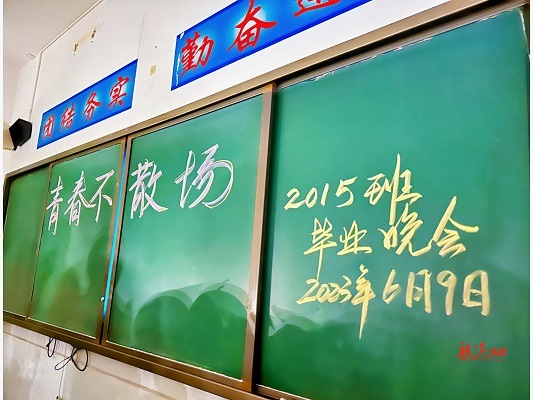 团结务实
勤奋进
青春不散场
2015班
毕业晚会
2023年6月9日